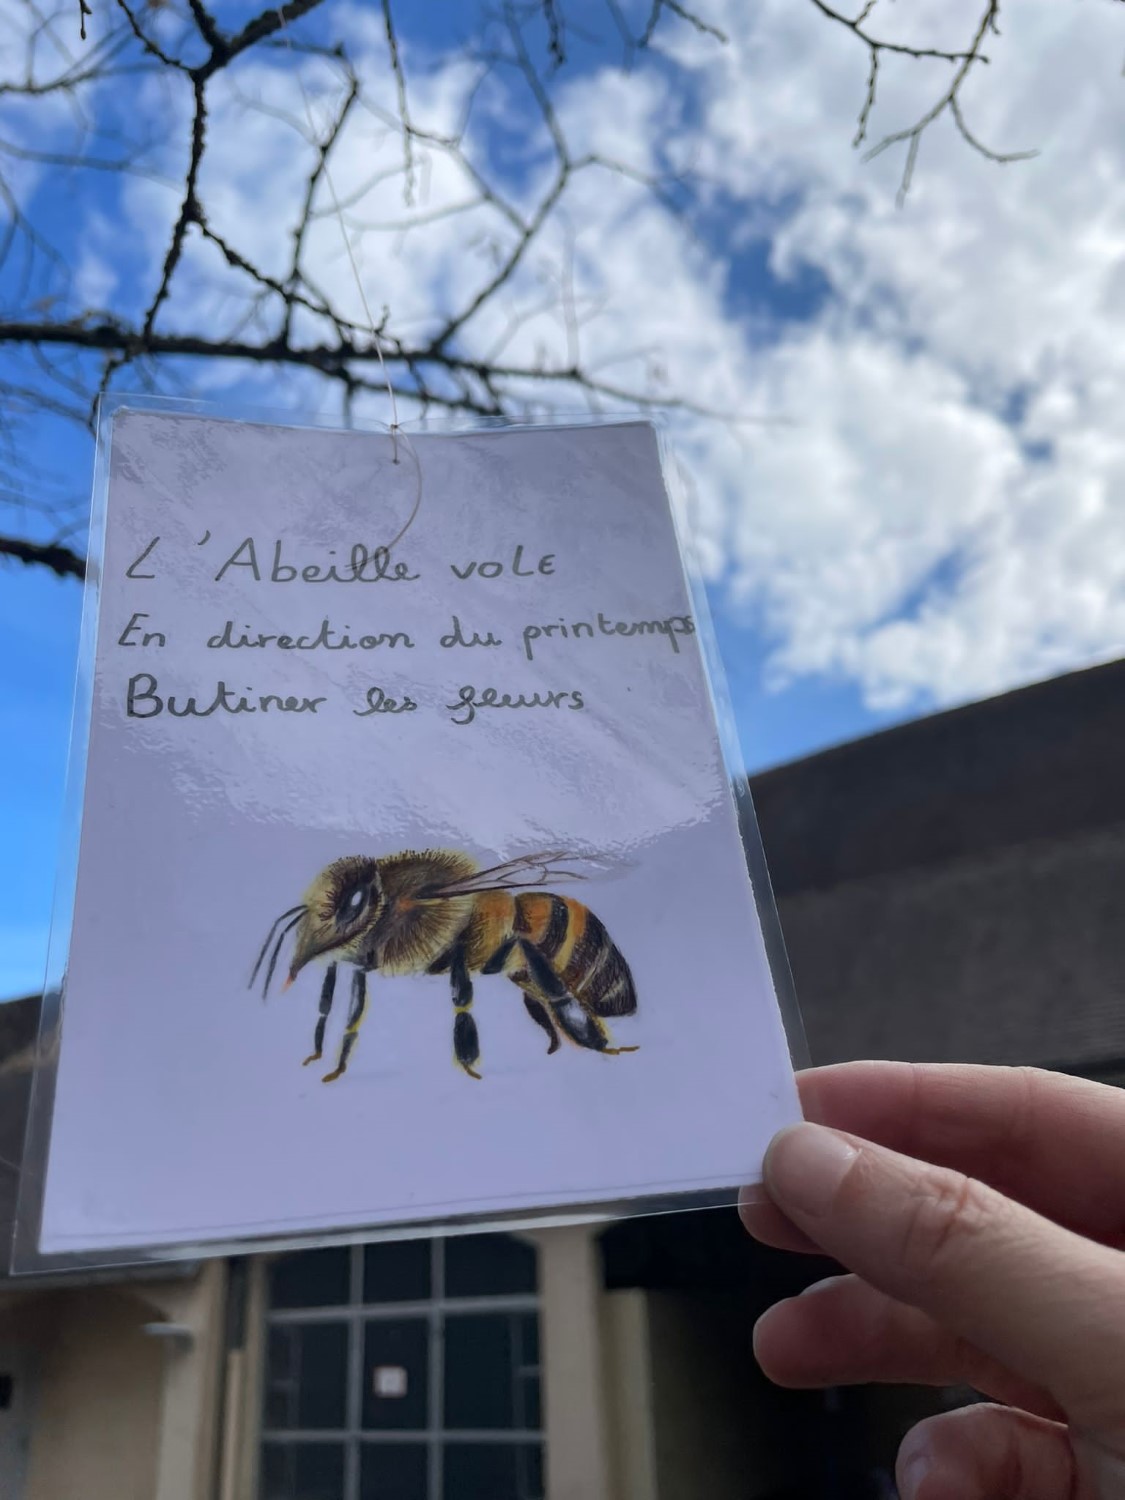 L'Abeille vole
En direction du printemps
Butiner les fleurs